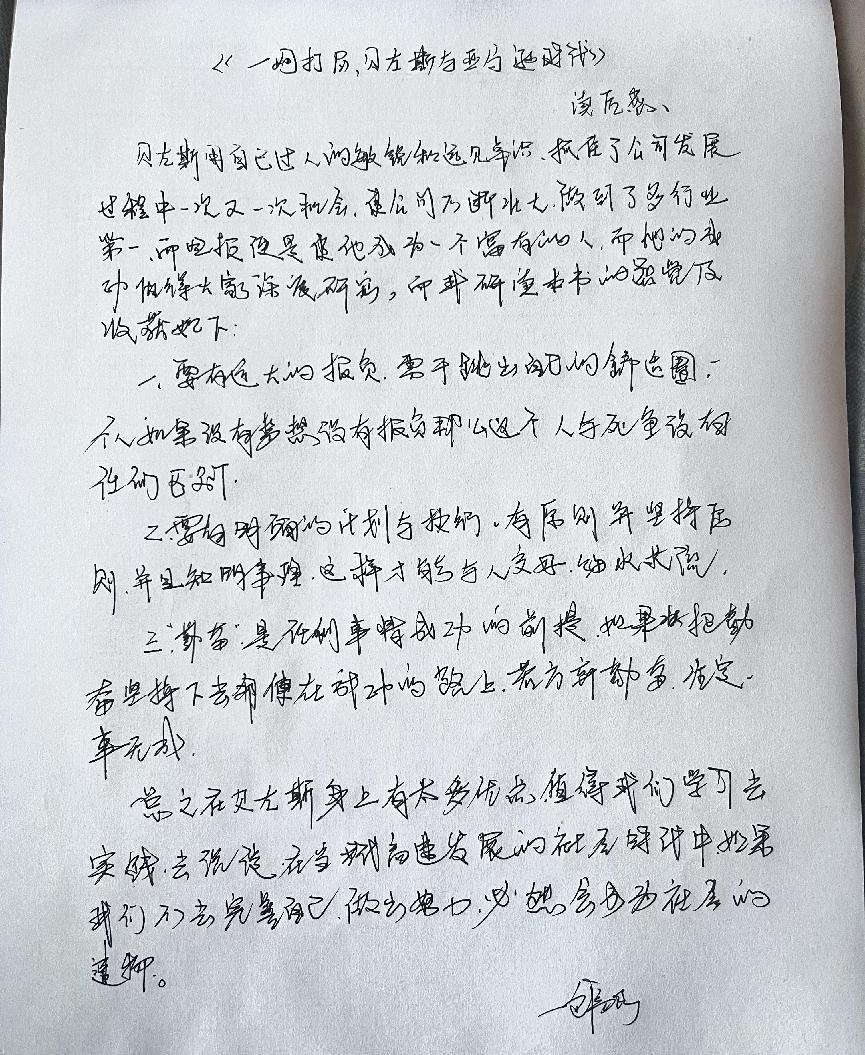 《一网打尽，贝左斯与亚马逊时代》
读后感、
贝左斯用自己过人的敏锐和远见卓识、抓住了公司发展
过程中一次又一次机会，使公司不断壮大，做到了多行业
第一，而电报使是使他成为一个富有的人，而他的成
功值得大家深度研究，而我研读本书的感觉及
收获如下：
一、要有远大的报负，要干跳出自己的舒适圈，一
个人如果没有梦想没有报负那么这个人与死鱼没有
任何区别。
二、要有明确的计划与，有原则并坚持原
则，并且知明事理，这样才能与人交好，细水长流。
三、“勤奋”是任何事情成功的前提，如果把勤
奋坚持下去那便在成功的路上，若不新勤奋，注定一
事无成。
总之在贝左斯身上有太多优点值得我们学习去
实践，去说说，在当代高速发展的社会时代中如果
我们不去完善自己，做出努力，必然会成为社会的
。